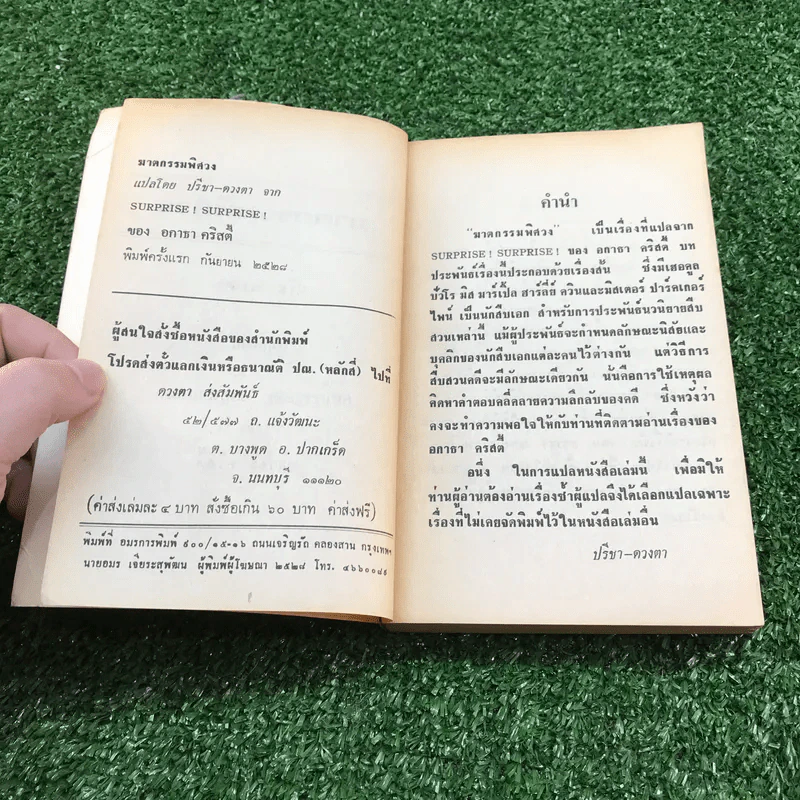 ฆาตกรรมพิศวง
แปลโดย ปรีชา-ดวงตา จาก
SURPRISE! SURPRISE!
ของ อกาธา คริสตี้
พิมพ์ครั้งแรก กันยายน ๒๕๒๘
ผู้สนใจสั่งซื้อหนังสือของสำนักพิมพ์
โปรดส่งตั๋วแลกเงินหรือธนาณัติ ปณ. (หลักสี่) ไปที่
ดวงตา ส่งสัมพันธ์
๕๒/๕๗๗ ถ. แจ้งวัฒนะ
ต. บางพูด อ. ปากเกร็ด
จ. นนทบุรี ๑๑๑๒๐
(ค่าส่งเล่มละ ๔ บาท สั่งซื้อเกิน ๖๐ บาท ค่าส่งฟรี)
พิมพ์ที่ อมรการพิมพ์ ๙๐๐/๑๕-๑๖ ถนนเจริญรัถ คลองสาน กรุงเทพฯ
นายอมร เจียระสุพัฒน ผู้พิมพ์ผู้โฆษณา ๒๕๒๘ โทร.
คำนำ
"ฆาตกรรมพิศวง" เป็นเรื่องที่แปลจาก
SURPRISE! SURPRISE! ของ อกาธา คริสตี้ บท
ประพันธ์เรื่องนี้ประกอบด้วยเรื่องสั้น ซึ่งมีเฮอคูล
ปัวโร มิส มาร์เปิ้ล ฮาร์ลีย์ ควินและมิสเตอร์ ปาร์คเกอร์
ไพน์ เป็นนักสืบเอก สำหรับการประพันธ์นวนิยายสืบ
สวนเหล่านี้ แม้ผู้ประพันธ์จะกำหนดลักษณะนิสัยและ
บุคลิกของนักสืบเอกแต่ละคนไว้ต่างกัน แต่วิธีการ
สืบสวนคดีจะมีลักษณะเดียวกัน นั่นคือการใช้เหตุผล
คิดหาคำตอบคลี่คลายความลึกลับของคดี ซึ่งหวังว่า
คงจะทำความพอใจให้กับท่านที่ติดตามอ่านเรื่องของ
อกาธา คริสตี้
อนึ่ง ในการแปลหนังสือเล่มนี้ เพื่อมิให้
ท่านผู้อ่านต้องอ่านเรื่องซ้ำผู้แปลจึงได้เลือกแปลเฉพาะ
เรื่องที่ไม่เคยจัดพิมพ์ไว้ในหนังสือเล่มอื่น
ปรีชา-ดวงตา